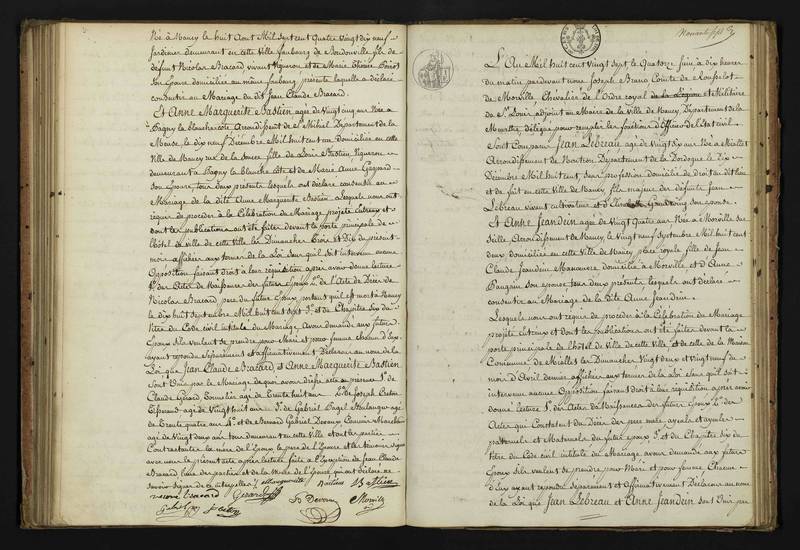 Né à Nancy le huit Aout Mil Sept cent Quatre Vingt dix neuf
Jardinier demeurant en cette Ville faubourg de Boudonville fils de
défunt Nicolas Bracard vivant Vigneron et de Marie
Son épouse domiciliée au même faubourg présente laquelle a déclaré
consentir au Mariage du dit Jean Claude Bracard.
Et Anne Marguerite Bastien agée de Vingt cinq ans Née à
Pagny la blanche côte Arrondissement de St Mihiel Département de la
Meuse, le dix neuf Décembre Mil huit cent un domiciliée en cette
Ville de Nancy rue de la source fille de Louis Bastien Vigneron
demeurant à Pagny la blanche côte et de Marie Anne
Son épouse, tous deux présents lesquels ont déclaré consentir au
Mariage de la dite Anne Marguerite Bastien. Lesquels nous ont
requis de procéder à la Célébration du Mariage projetté entr'eux et
dont les publications ont été faites devant la porte principale de
l'hôtel de ville de cette Ville les Dimanches trois et Dix du présent
mois affichées aux termes de la Loi sans qu'il soit intervenu aucune
Opposition faisant droit à leur réquisition après avoir donné lecture
1° des Actes de Naissance des futurs Epoux 2° de l'Acte de Décès de
Nicolas Bracard père du futur Epoux portant qu'il est mort à Nancy
le dix huit Septembre Mil huit cent sept 3° et du Chapitre Six du
titre du Code civil intitulé du Mariage, Avons demandé aux futurs
Epoux s'ils veulent se prendre pour Mari et pour femme chacun d'eux
ayant répondu Séparément et affirmativement Déclarons au nom de la
Loi que Jean Claude Bracard et Anne Marguerite Bastien
Sont Unis par le Mariage de quoi avons dressé acte en présence 1° de
Claude Gérard Tonnelier agé de trente huit ans 2° de Joseph
agé de Vingt huit ans 3° de Gabriel Pagel Boulanger agé
de trente quatre ans 4° et de Bernard Gabriel Devaux Commis Marchand
agé de Vingt deux ans tous demeurant en cette Ville et ont les parties
Contractantes la mère de l'Epoux le père de l'Epouse et les témoins signé
avec nous le présent acte après lecture faite à l'exception de Jean Claude
Bracard et de la Mère de l'Epouse qui ont déclaré ne
savoir signer de ce interpellés
Marguerite Bastien Bastien
Bracard Gérard
Devaux
L'An Mil huit cent Vingt sept le Quatorze Juin à dix heures
du matin pardevant nous Joseph Bruno Comte de
de Morville, Chevalier de l'Ordre royal de la Légion et Militaire
de St Louis, adjoint au Maire de la Ville de Nancy Département de la
Meurthe, délégué pour remplir les fonctions d'officier de l'état civil
Sont Comparus Jean Lebreau agé de Vingt Six ans Né à
Arrondissement de Nontron Département de la Dordogne le Dix
Décembre Mil huit cent sans profession domicilié de droit au dit lieu
et de fait en cette Ville de Nancy, fils majeur des défunts Jean
Lebreau vivant cultivateur et d' son épouse.
Et Anne Jeandein agée de Vingt Quatre ans Née à Morville sur
Seille Arrondissement de Nancy le Vingt neuf Septembre Mil huit cent
deux domiciliée en cette Ville de Nancy place royale fille de Jean
Claude Jeandein Manœuvre domicilié à Morville et d'Anne
son épouse tous deux présents lesquels ont déclaré
consentir au Mariage de la dite Anne Jeandein.
Lesquels nous ont requis de procéder à la Célébration du Mariage
projetté entr'eux et dont les publications ont été faites devant la
porte principale de l'hôtel de Ville de cette Ville, et de celle de la Maison
Commune de les Dimanches Vingt deux et Vingt neuf du
mois d'Avril dernier affichées aux termes de la Loi sans qu'il soit
intervenu aucune Opposition faisant droit à leur réquisition après avoir
donné lecture 1° des Actes de Naissance des futurs Epoux 2° des
Actes qui Constatent les Décès des père mère, ayeuls et ayeules
paternels et Maternels du futur époux 3° et du Chapitre Six du
titre du Code civil intitulé du Mariage, avons demandé aux futurs
Epoux s'ils veulent se prendre pour Mari et pour femme Chacun
d'Eux ayant répondu Séparément et Affirmativement Déclarons au nom
de la Loi que Jean Lebreau et Anne Jeandein Sont Unis par